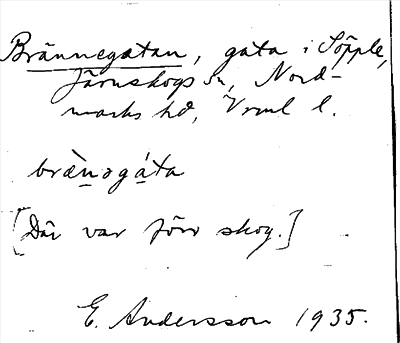 Brännegatan, gata i Söpple,
Järnskogs sn, Nord-
marks hd, Vrml l.
brän̲ogát̲a
[Där var förr skog.]
E. Andersson 1935.